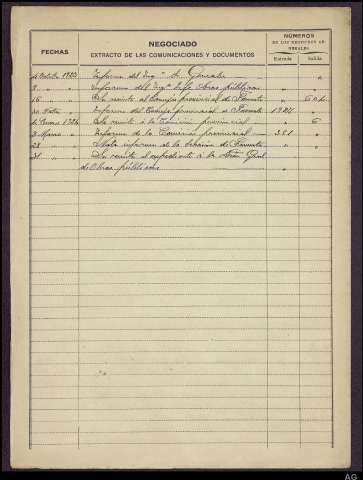 NEGOCIADO
EXTRACTO DE LAS COMUNICACIONES Y DOCUMENTOS
FECHAS
NÚMEROS
DE LOS REGISTROS GENERALES
Entrada
Salida
4 Octubre 1923 Informe del Ingº Sr. Gonzalez
9 " " Informe del Ingº Jefe Obras públicas " "
16 " " Se remite al Consejo provincial de Fomento "
Informe del Consejo provincial de Fomento
Enero 1924 Se remite a la Comisión provincial " 6
3 Marzo " Informe de la Comisión provincial 351 "
28 " informe de la de Fomento " "
31 " Se remite el expediente a la Dirón Gral
de Obras públicas " "
AG